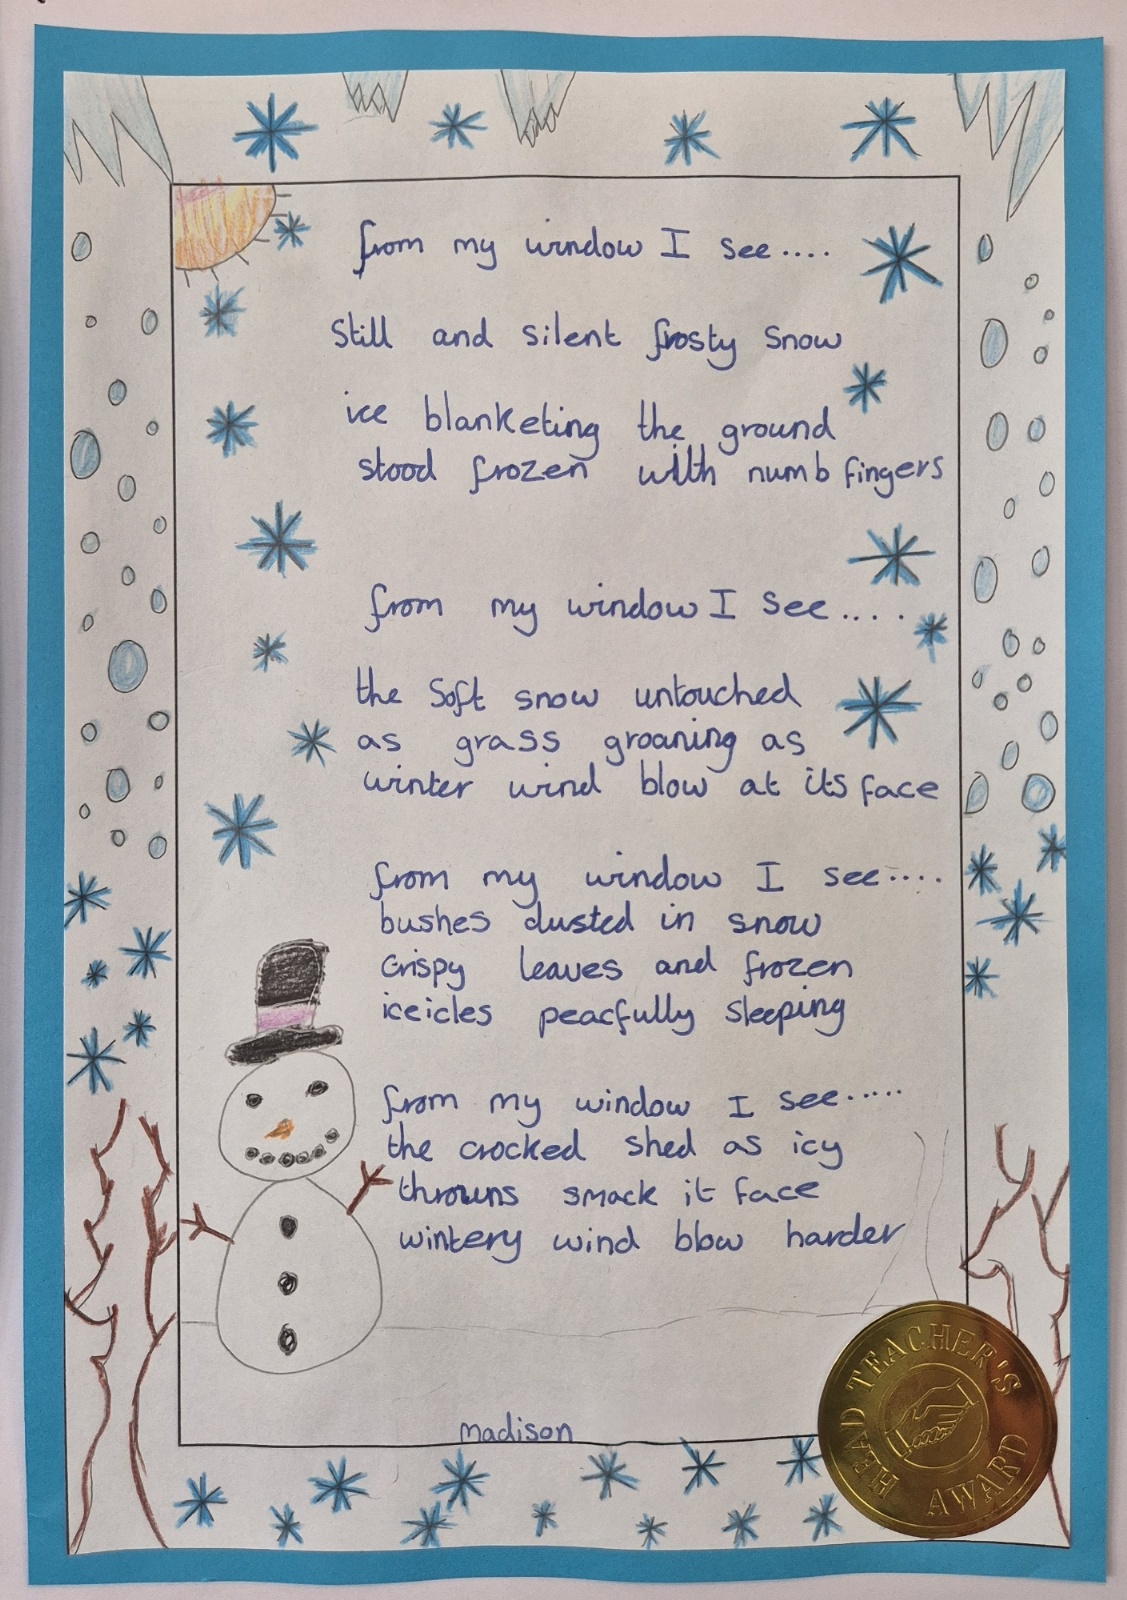 from my window I see....
Still and silent frosty snow
ice blanketing the ground
stood frozen with numb fingers
from my window I see....
the soft snow untouched
as grass groaning as
winter wind blow at its face
from my window I see....
bushes dusted in snow
crispy leaves and frozen
iceicles peacfully sleeping
from my window I see.....
the crocked shed as icy
throwns smack it face
wintery wind blow harder
madison
HEAD TEACHER'S AWARD